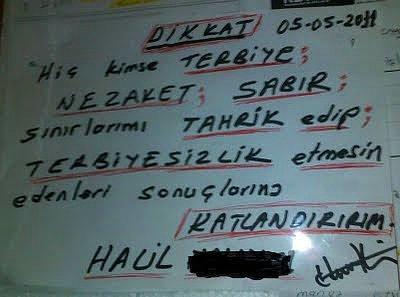 DİKKAT 05-05-2011
Hiç kimse TERBİYE;
NEZAKET; SABIR;
sınırlarımı TAHRİK edip;
TERBİYESİZLİK etmesin
edenleri sonuçlarına
KATLANDIRIRIM.
HALİL